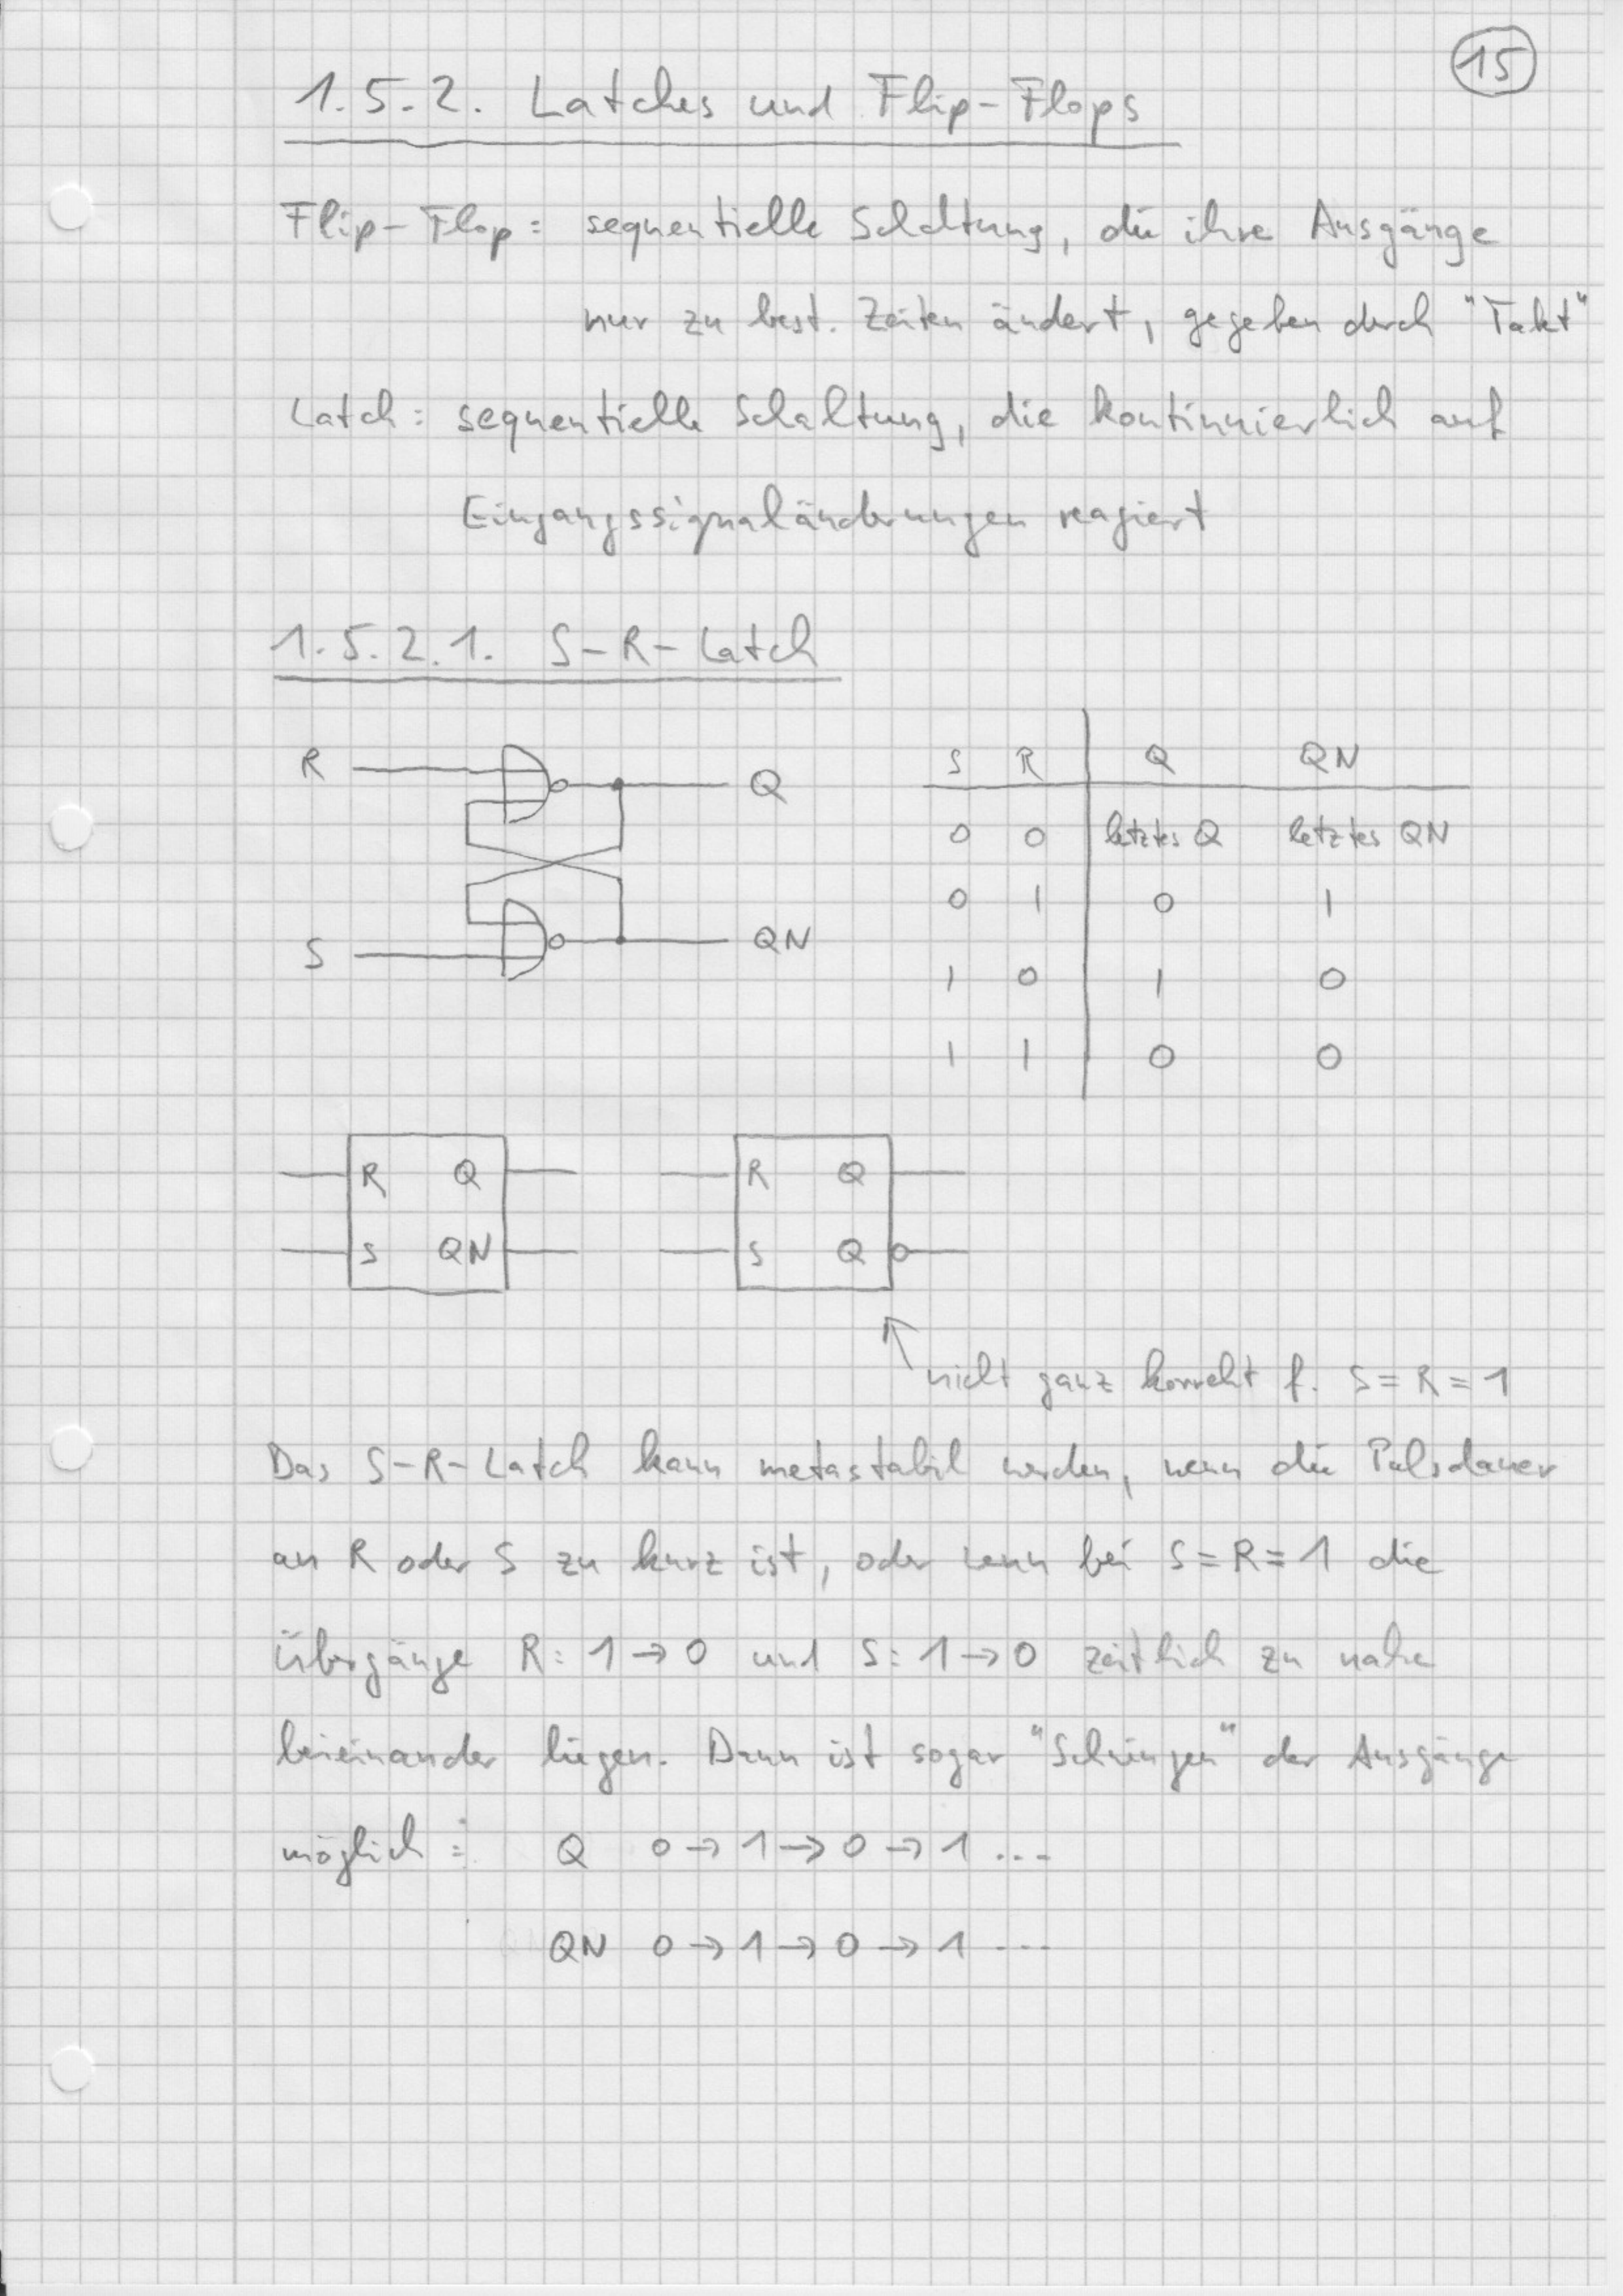 15
1.5.2. Latches und Flip-Flops
Flip-Flop: sequentielle Schaltung, die ihre Ausgänge
nur zu best. Zeiten ändert, gegeben durch "Takt"
Latch: sequentielle Schaltung, die kontinuierlich auf
Eingangssignaländerungen reagiert
1.5.2.1. S-R-Latch
R Q
S QN
S R Q QN
0 0 letztes Q letztes QN
0 1 0 1
1 0 1 0
1 1 0 0
R Q R Q
S QN S Q
nicht ganz korrekt f. S=R=1
Das S-R-Latch kann metastabil werden, wenn die Pulsdauer
an R oder S zu kurz ist, oder wenn bei S=R=1 die
Übergänge R: 1→0 und S: 1→0 zeitlich zu nahe
beieinander liegen. Dann ist sogar "Schwingen" der Ausgänge
möglich: Q 0→1→0→1 ...
QN 0→1→0→1 ...